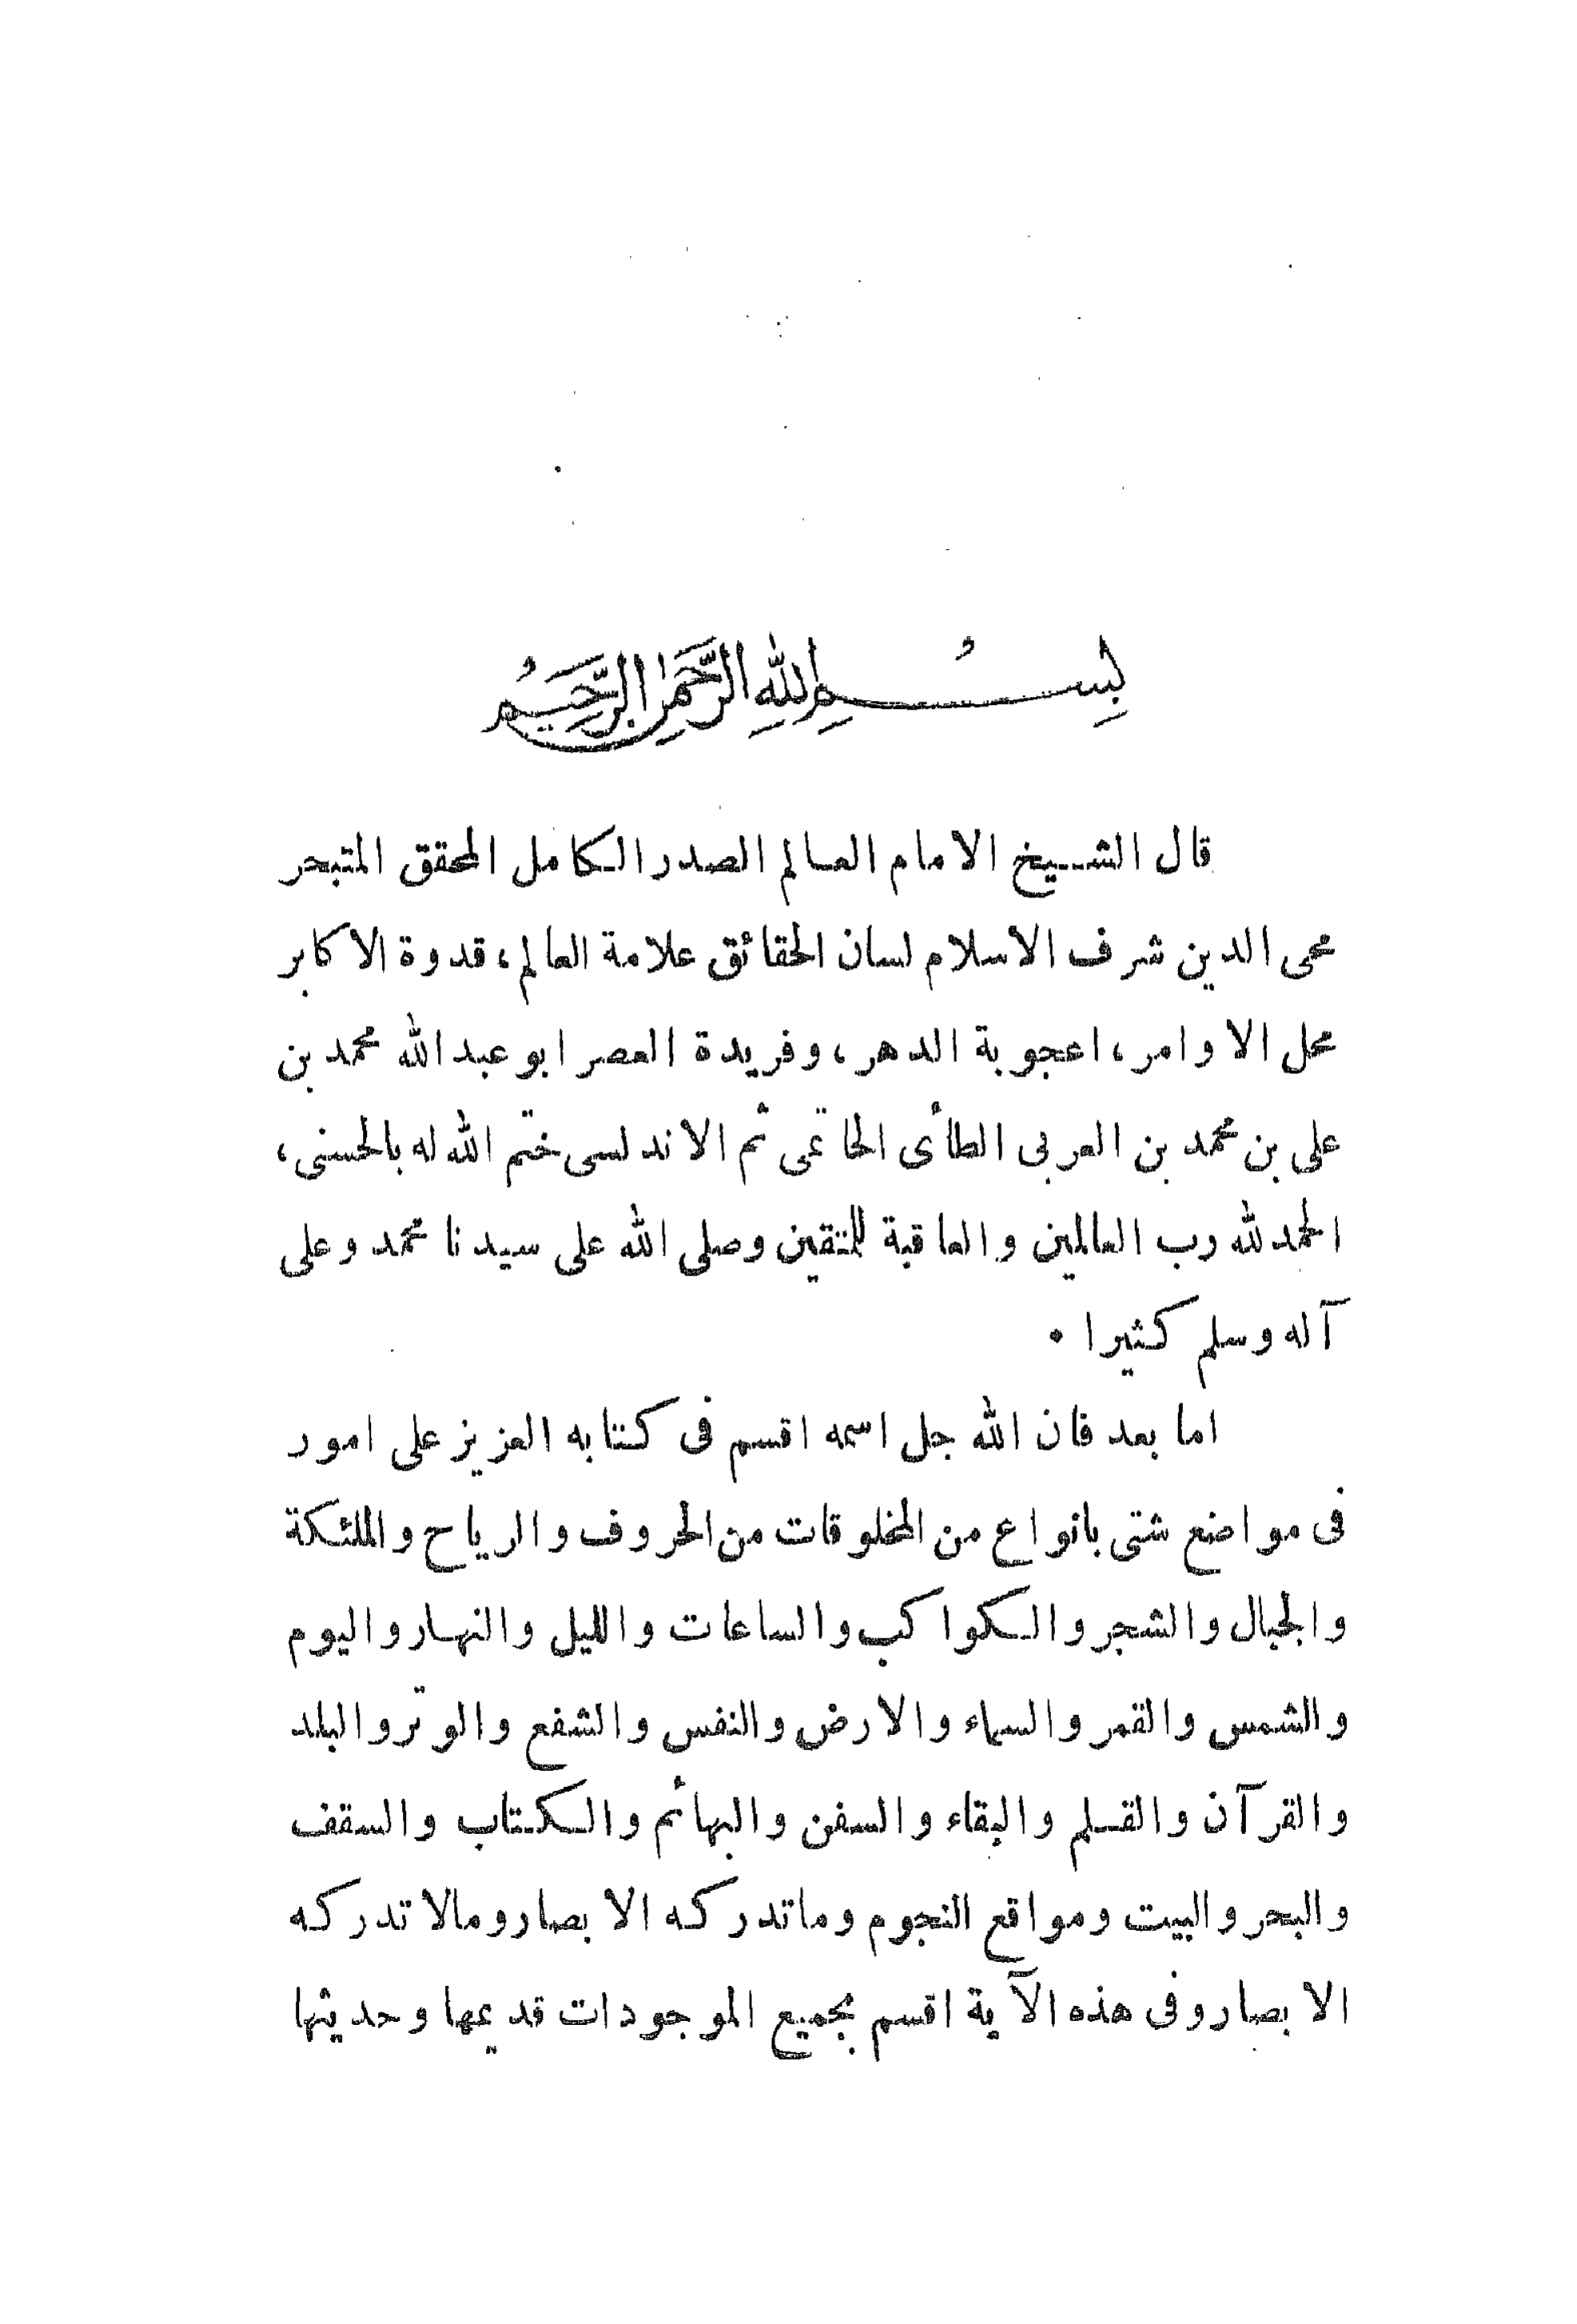 بِسْمِ اللهِ الرَّحْمٰنِ الرَّحِيْمِ
قال الشيخ الامام العالم الصدر الكامل المحقق المتبحر
محى الدين شرف الاسلام لسان الحقائق علامة العالم، قدوة الاكابر
محل الاوامر، اعجوبة الدهر، وفريدة العصر ابو عبد الله محمد بن
على بن محمد بن العربى الطأى الحاتمى ثم الاندلسى ختم الله له بالحسنى،
الحمد لله رب العالمين والعاقبة للمتقين وصلى الله على سيدنا محمد وعلى
آله وسلم كثيرا •
اما بعد فان الله جل اسمه اقسم فى كتابه العزيز على امور
فى مواضع شتى بانواع من المخلوقات من الحروف والرياح والملئكة
والجبال والشجر والكواكب والساعات والليل والنهار واليوم
والشمس والقمر والسماء والارض والنفس والشفع والوتر والبلد
والقرآن والقلم والبقاء والسفن والبهائم والكتاب والسقف
والبحر والبيت ومواقع النجوم وماتدركه الابصار ومالا تدركه
الابصار وفى هذه الآية اقسم بجميع الموجودات قديمها وحديثها